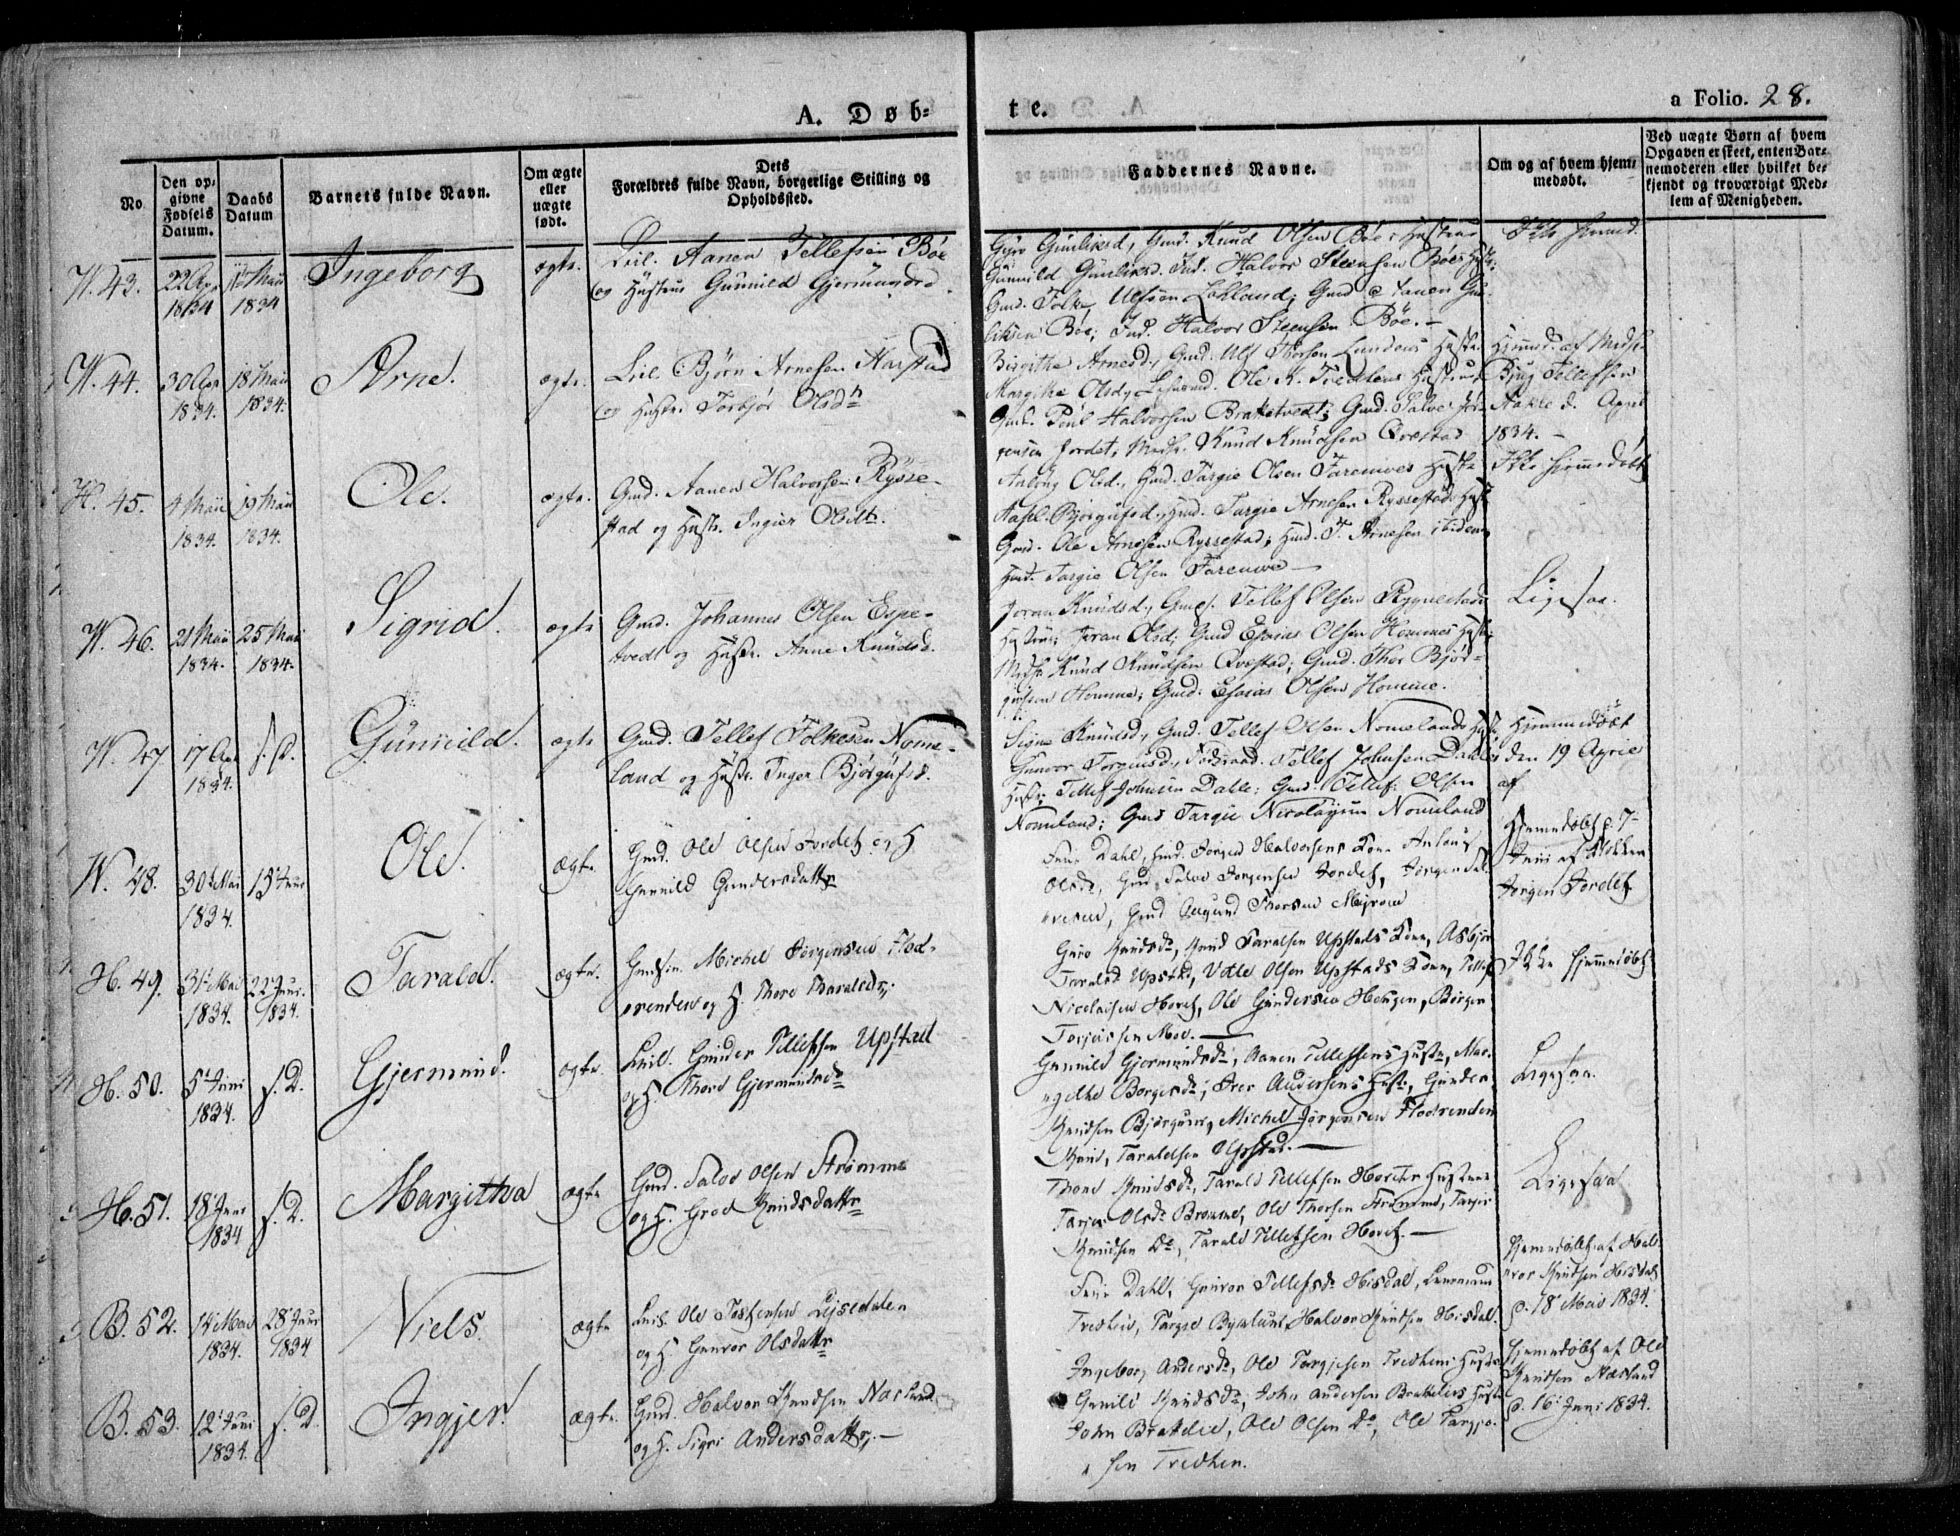 A. Døb-
te.
a Folio. 28.
No
Den op-
givne
Fødsels
Datum.
Daabs
Datum
Barnets fulde Navn.
Om ægte
eller
uægte
født.
Dets
Forældres fulde Navn, borgerlige Stilling og
Opholdssted.
Faddernes Navne.
Om og af hvem hjem-
medøbt.
Ved uægte Børn af hvem
Opgaven er skeet, enten Bar-
nemoderen eller hvilket be-
kjendt og troværdigt Med-
lem af Menigheden.
43. 22 Apr 1834 Maii 1834 Ingeborg ægte.
Leil. Aanen Tellefsen Böe
og Hustrue Gunnild Gjermundsd.
Gyro Gunliksd, Gmd. Knud Olsen Böes Hustrue
Gunnild Gunliksd. Ind. Halvor Steensen Böes Hustr:
Gmd. Folke Ulfsen Lohland; Gmd Aanen Gun-
liksen Böe; Ind. Halvor Steensen Böe.—
44. 30 Apr 1834. 18 Maii 1834. Arne. ægte.
Leil. Björn Arnesen Harstad
og Hustr. Torbjör Olsdtr
Birgithe Arnesd., Gmd. Ulf Thorsen Hustr.
Margithe Olsd, Ole K. Hustrue
Gmd. Poul Halvorsen Brottetvedt; Gmd. Salve Jör-
gensen Jordet; Knud Knudsen Qvestad
Hjemmed. af
Bjug Tellefsen
d. April
1834.—
H. 45. 4 Maii 1834. 19 Maii 1834. Ole. ægte.
Gmd. Aanen Halvorsen Rysse-
stad og Hustr. Ingier Olsdtr.
Anlaug Olsd., Gmd. Targie Olsen Hustr
Aasl. Björgufsd., Gmd. Targie Arnesen Ryssestads Hust
Gmd. Ole Arnesen Ryssestad; Gmd. T. Arnesen ibidem
Gmd. Targie Olsen
Ikke Hjemmedøbt
46. 21 Maii 1834. 25 Maii 1834. Sigrid. ægte
Gmd. Johannes Olsen Espe-
tvedt og Hustr. Anne Knudsd.
Joran Knudsd., Gmd. Tellef Olsen Rygnestads
Hustrue; Joran Olsd; Gmd Esaias Olsen Hommes Hustr;
Knud Knudsen Qvestad; Gmd. Thor Björ-
gufsen Homme; Gmd. Esaias Olsen Homme.
Ligesaa.
47 17 Apr 1834. s. D. Gunnild. ægte
Gmd. Tellef Folkesen Nome-
land og Hustr. Inger Björgufsd.
Signe Knudsd., Gmd. Tellef Olsen Nomelands Hustr;
Gunvor Torgiusd., Tellef Johnsen Dahles
Hustr; Tellef Johnsen Dahle; Gmd. Tellef Olsen
Nomeland; Gmd Targie Nicolaysen Nomeland
Hjemmedøbt
den 19 April
af
48. 30t Mai 1834. 15 Juni Ole. ægte
Gmd. Ole Olsen Jordet og H
Gunnild Gundersdatter
Frue Dahl, Gmd. Jörgen Halvorsens Kone Anlaug
Olsdr, Gmd. Salve Jörgensen Jordet, Jörgen Hal-
vorsen, Gmd Aagund Thorsen
Hjemmedøbt d. 7
Juni af Klokker
Jörgen Jordet
H. 49. 31t Mai 1834. 22 Juni 1834. Tarald. ægte.
Michel Jörgensen Flod-
renden og H. Thore Taraldsdr;
Guro Knudsdr, Knud Taralsen Upstads Kone, Asbjör
Taralsd Upstad, Votle Olsen Upstads Kone, Tellef
Nicolaisen Horet, Ole Gundersen Haugen, Börgen
Torjussen Moe.—
Ikke Hjemmedøbt
H. 50. 5t Juni 1834. s. D. Gjermund. ægte.
Leil. Gunder Tellefsen Upstad
og H. Thore Gjermundsdr
Gunnild Gjermundsdr, Aanen Tellefsens Hustr, Mar-
gethe Borgesdr, Andersens Hustr, Gunder
Knudsen Björgum, Michel Jörgensen Flodrenden
Knud Taraldsen Upstad.—
Ligesaa.
H. 51. 18t Juni 1834 s. D. Margitha ægte
Gmd. Salve Olsen Strömme
og H. Groe Knudsdatter
Thore Knudsdr, Tarald Tellefsen Horets Hustrue
Tarjer Olsdr Brömme, Ole Thorsen Strömme, Targie
Knudsen Do, Tarald Tellefsen Horet.—
Ligesaa
B. 52. 14 Mai 1834. 28 Juni 1834 Niels. ægte
Leil. Ole Lisedalen
og H Gunvor Olsdatter
Frue Dahl, Gunvor Tellefsdr Hisdal, Lensmand
Tredhen, Targie Bygland, Halvor Knudsen Hisdal.
Hjemmedøbt af Hal-
vor Knudsen Hisdal
d. 18 Mai 1834.
B. 53. 12t Juni 1834. s. D. Ingjer. ægte.
Gmd. Halvor Knudsen Nasland
og H. Sigri Andersdatter;—
Ingebor Andersdr, Ole Targiesen Tredhens Hustr
Gunild Knudsdr, John Andersen Brattelies Hustr
John Brattelie, Ole Olsen Do, Ole Targie-
sen Tredhen.
Hjemmedøbt af Ole
Knudsen Nasland
d. 16 Juni 1834.